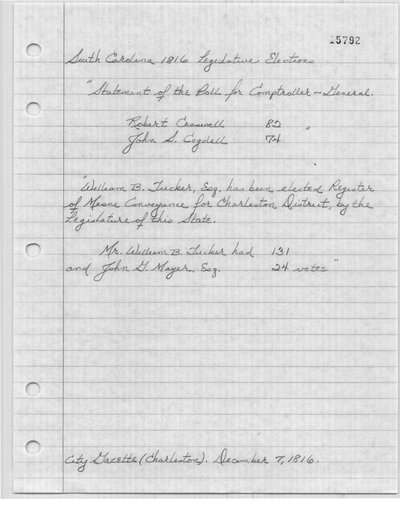 15792
South Carolina 1816 Legislative Elections
"Statement of the Poll for Comptroller-General.
Robert Creswell 82
John S. Cogdell 74 "
"William B. Tucker, Esq. has been elected Register
of Mesne Conveyance for Charleston District, by the
Legislature of this State.
Mr. William B. Tucker had 131
and John G. Mayer, Esq. 24 votes"
City Gazette (Charleston). December 7, 1816.